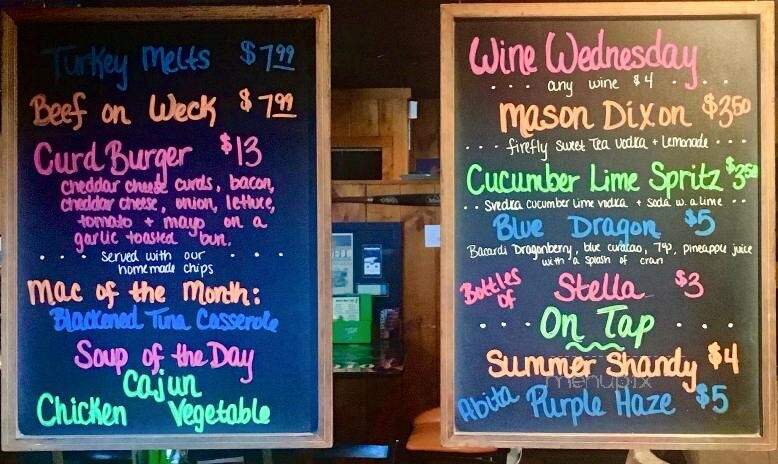 Turkey Melts $7.99
Beef on Weck $7.99
Curd Burger $13
cheddar cheese curds, bacon,
cheddar cheese, onion, lettuce,
tomato + mayo on a
garlic toasted bun.
served with our
homemade chips
Mac of the Month:
Blackened Tuna Casserole
Soup of the Day
Cajun
Chicken Vegetable
Wine Wednesday
any wine $4
Mason Dixon $3.50
firefly Sweet Tea vodka + Lemonade
Cucumber Lime Spritz $3.50
Svedka cucumber lime vodka + soda w. a lime
Blue Dragon $5
Bacardi Dragonberry, blue curacao, 7up, pineapple juice
with a splash of cran
Bottles of Stella $3
On Tap
Summer Shandy $4
menupix
Abita Purple Haze $5